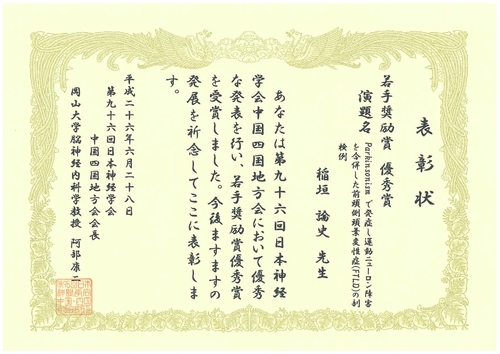 表彰状
若手奨励賞 優秀賞
演題名 Parkinsonism で発症し運動ニューロン障害
を合併した前頭側頭葉変性症(FTLD)の剖
検例
稲垣 諭史 先生
あなたは第九十六回日本神経
学会中国四国地方会において優秀
な発表を行い、若手奨励賞優秀賞
を受賞しました。今後ますますの
発展を祈念してここに表彰しま
す。
平成二十六年六月二十八日
第九十六回日本神経学会
中国四国地方会会長
岡山大学脳神経内科学教授 阿部康二